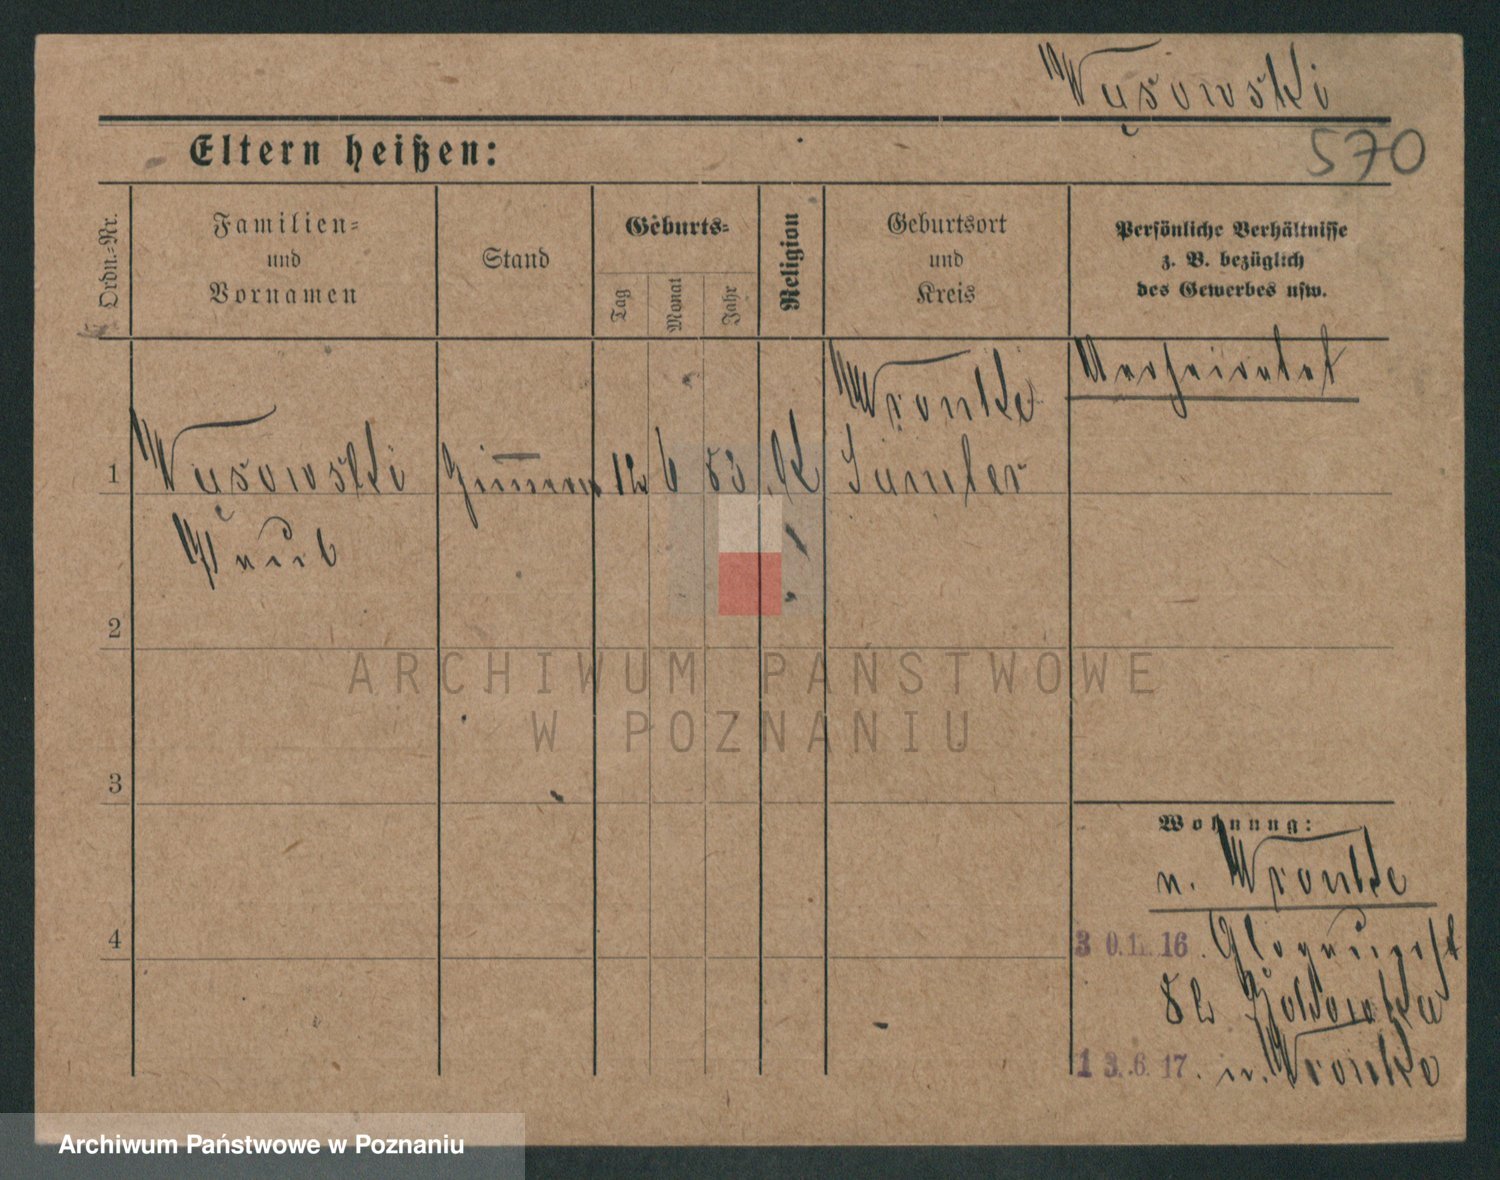 Wysowski
570
Eltern heißen:
Ordn.-Nr.
Familien-
und
Vornamen
Stand
Geburts-
Tag
Monat
Jahr
Religion
Geburtsort
und
Kreis
Persönliche Verhältnisse
z. B. bezüglich
des Gewerbes usw.
Verheiratet
Wronke
1 Wysowski 12 6 83 K Samter
2
ARCHIWUM PAŃSTWOWE
W POZNANIU
3
Wohnung:
n. Wronke
4
30.11.16. Glogauerst
13.6.17. n. Wronke
Archiwum Państwowe w Poznaniu